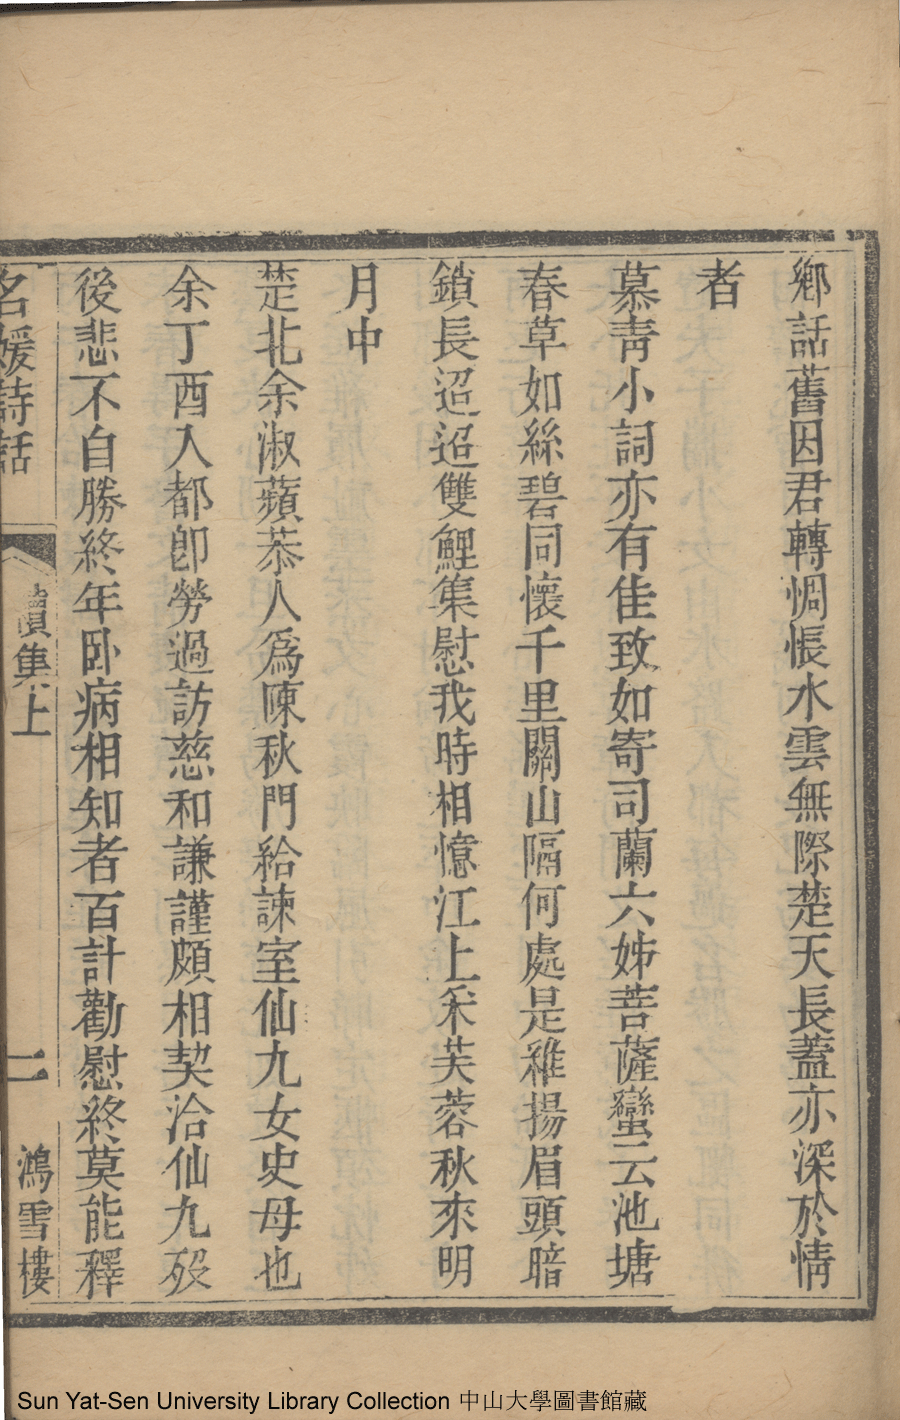 鄉話舊因君轉惆悵水雲無際楚天長蓋亦深於情
者
慕靑小詞亦有佳致如寄司蘭六姊菩薩蠻云池塘
春草如絲碧同懷千里關山隔何處是維揚眉頭暗
鎖長迢迢雙鯉集慰我時相憶江上采芙蓉秋來明
月中
楚北余淑蘋恭人爲陳秋門給諫室仙九女史母也
余丁酉入都卽勞過訪慈和謙謹頗相契洽仙九歿
後悲不自勝終年臥病相知者百計勸慰終莫能釋
名媛詩話
續集上
二
鴻雪樓
Sun Yat-Sen University Library Collection 中山大學圖書館藏